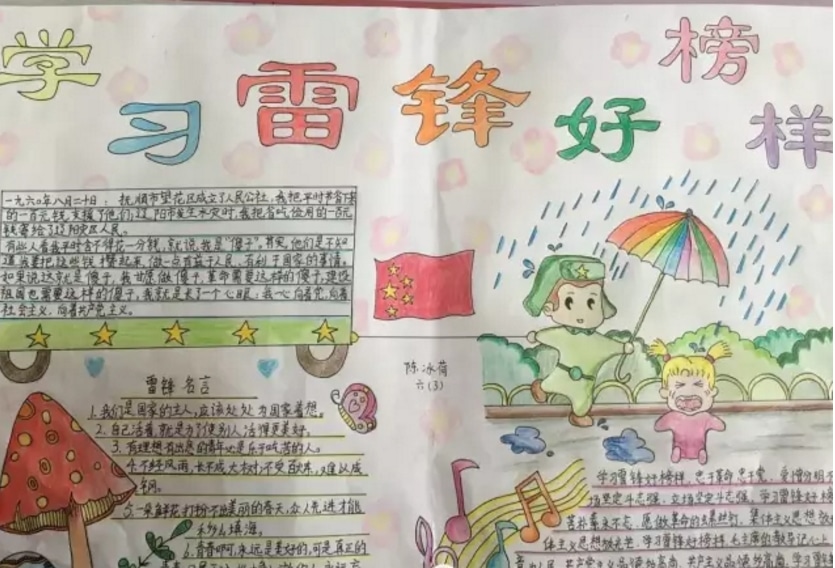 学习雷锋好榜样
一九六〇年八月二十日：抚顺市望花区成立了人民公社，我把平时节省下来
的一百元钱，支援了他们；辽阳市发生水灾时，我把省吃俭用的一百元
钱寄给了辽阳灾区人民。
有些人看我平时舍不得花一分钱，就说我是"傻子"。其实，他们是不知
道我要把这些钱攒起来，做一点有益于人民、有利于国家的事情。
如果说这就是傻子，我甘愿做傻子，革命需要这样的傻子，建设
祖国也需要这样的傻子，我就是长了一个心眼：我心向着党，向着
社会主义，向着共产主义。
陈冰荷
六(3)
雷锋名言
1.我们是国家的主人，应该处处为国家着想。
2.自己活着，就是为了使别人活得更美好。
3.有理想有出息的青年必是乐于吃苦的人。
4.不经风雨，长不成大树；不受百炼，难以成
钢。
5.一朵鲜花打扮不出美丽的春天，众人先进才能
移山填海。
6.青春啊，永远是美好的，可是真正的
学习雷锋好榜样，忠于革命忠于党，爱憎分明不
立场坚定斗志强，学习雷锋好榜
艰苦朴素永不忘，愿做革命的螺丝钉，集体主义思想放
体主义思想放光芒，学习雷锋好榜样，毛主席的教导记心上
共产主义品德多高尚，共产主义品德多高尚，学习雷